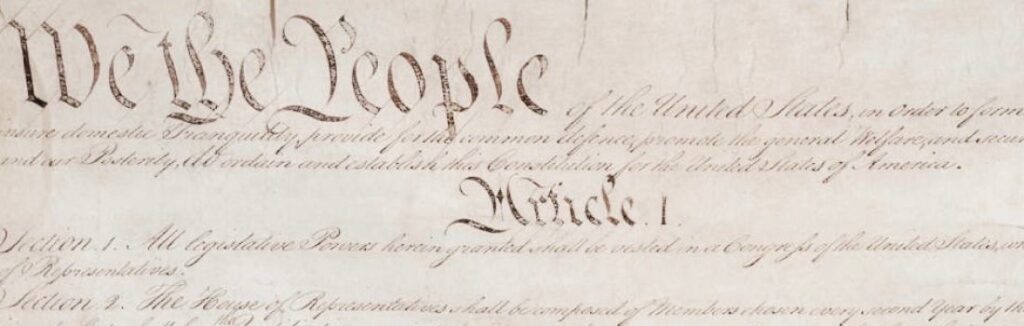 We the People of the United States, in Order to form
insure domestic Tranquility, provide for the common defence, promote the general Welfare, and secur
and our Posterity, do ordain and establish this Constitution for the United States of America.
Article. I.
Section. 1. All legislative Powers herein granted shall be vested in a Congress of the United States, wh
of Representatives.
Section. 2. The House of Representatives shall be composed of Members chosen every second Year by the